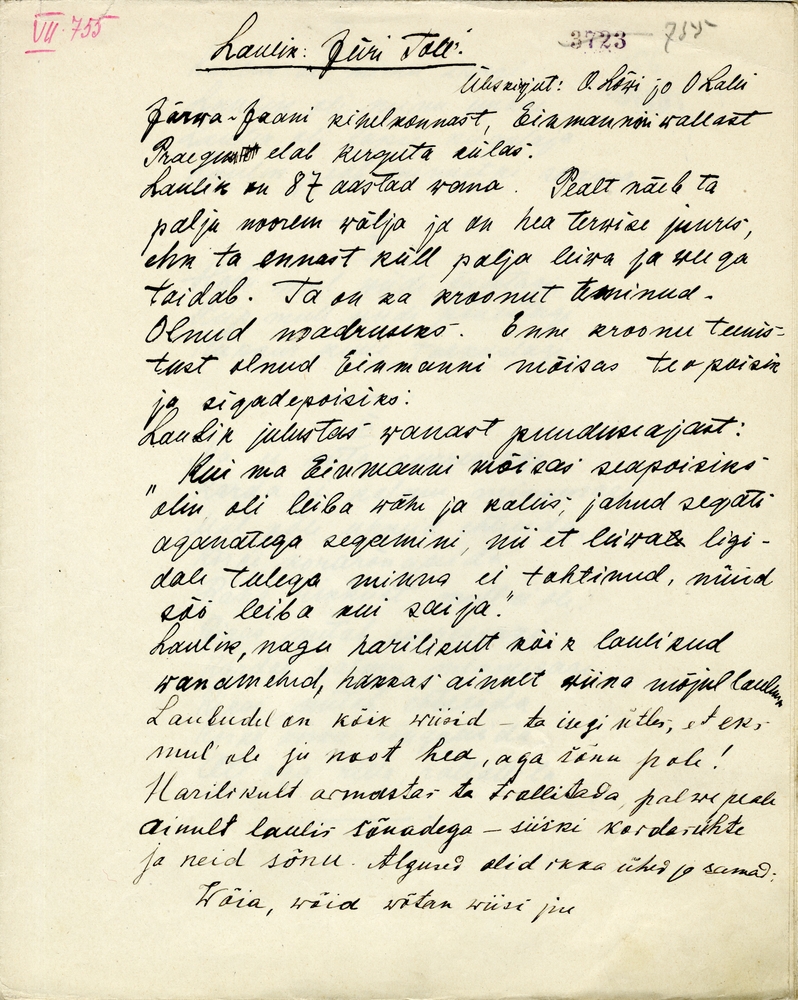 VII. 755
3723 755
Laulik: Jüri Toll.
Üleskirjut: O. Lõwi ja O Labi
Järwa-Jaani kihelkonnast, Einmanni wallast
Praegu elab Kerguta külas.
Laulik on 87 aastad wana. Pealt näeb ta
palju noorem wälja ja on hea terwise juures,
ehk ta ennast küll palja leiwa ja weega
toidab. Ta on ka kroonut teninud.
Olnud madruseks. Enne kroonu teenis-
tust olnud Einmanni mõisas teopoisik
ja sigadepoisiks.
Laulik jutustas wanast puuduseajast:
"Kui ma Einmanni mõisas seapoisiks
olin oli leiba wähe ja kallis, jahud segati
aganatega segamini, nii et leiwale ligi-
dale tulega minna ei tohtinud, nüüd
söö leiba kui saija."
Laulik, nagu harilikult kõik laulikud
wanamehed, hakkas ainult wiina mõjul laulma
Lauludel on kõik wiisid – ta isegi ütles, et eks
mul ole ju noot hea, aga sõnu pole!
Harilikult armastas ta trollitada, palwe peale
ainult laulis sõnadega – siiski kordas ühte
ja neid sõnu. Algused olid ikka ühed ja samad:
Wõia, wõid wõtan wiisi ju